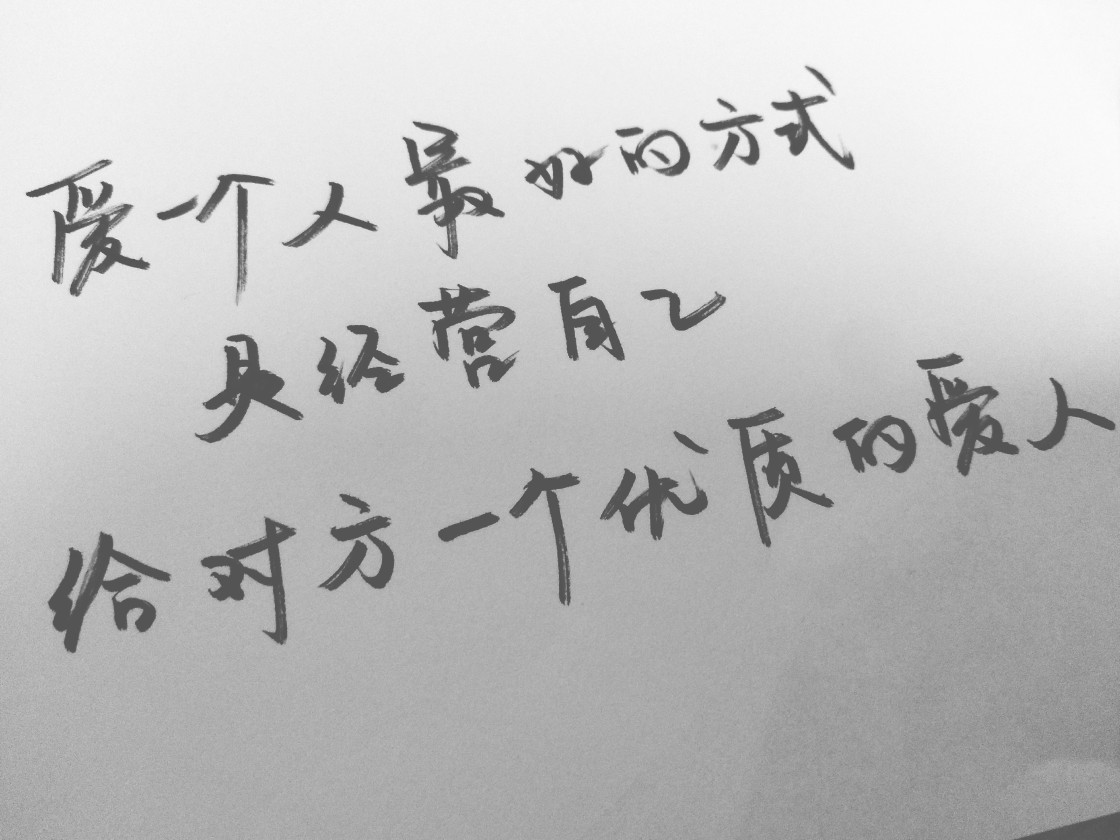 爱一个人最好的方式
是经营自己
给对方一个优质的爱人